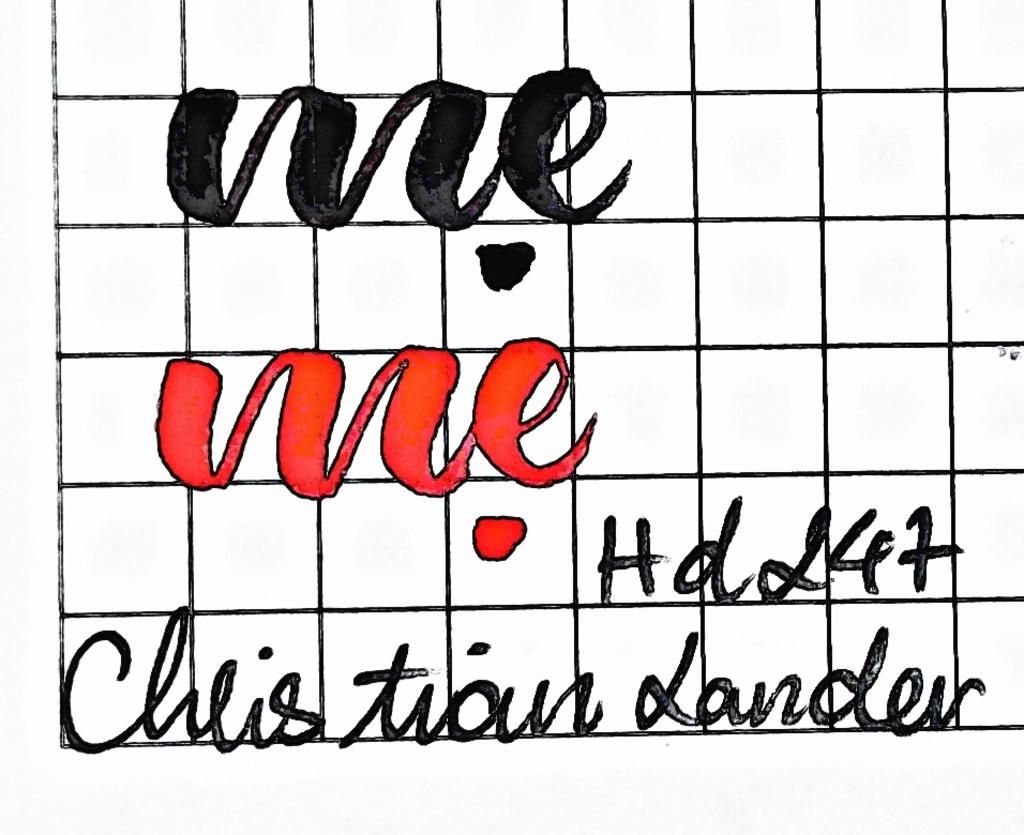 me
me
Hd 247
Christian Lander